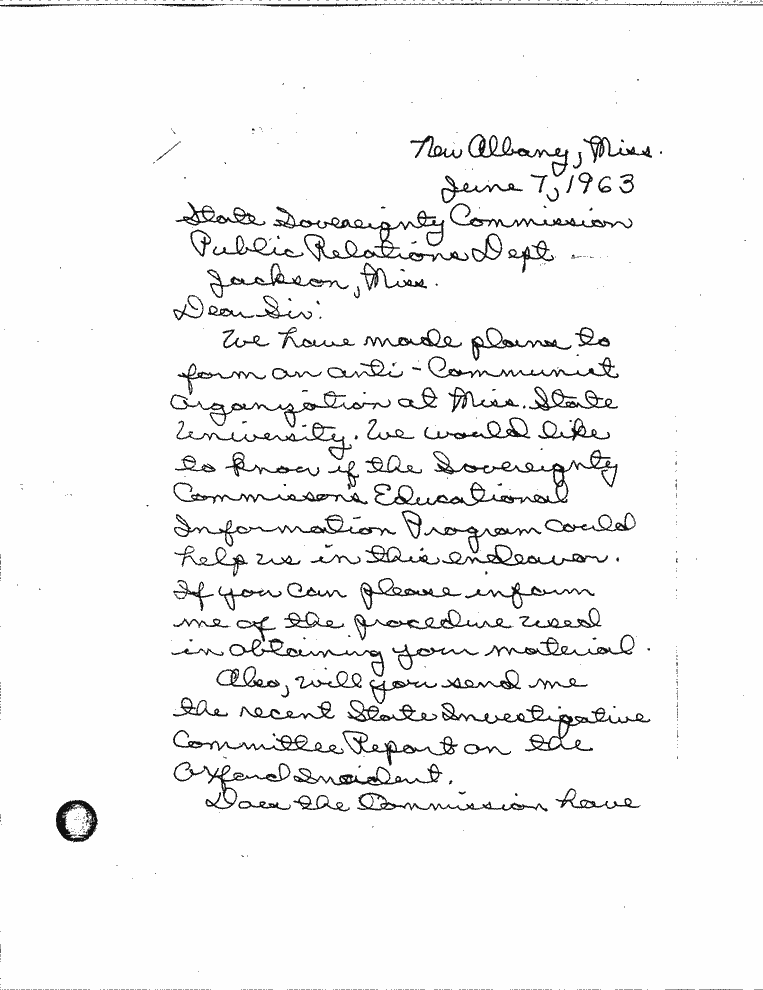 New Albany, Miss.
June 7, 1963
State Sovereignty Commission
Public Relations Dept
Jackson, Miss.
Dear Sir:
We have made plans to
form an anti-Communist
organization at Miss. State
University. We would like
to know if the Sovereignty
Commisson's Educational
Information Program could
help us in this endeavor.
If you can please inform
me of the procedure used
in obtaining your material.
Also, will you send me
the recent State Investigative
Committee Report on the
Oxford Incident.
Does the Commission have